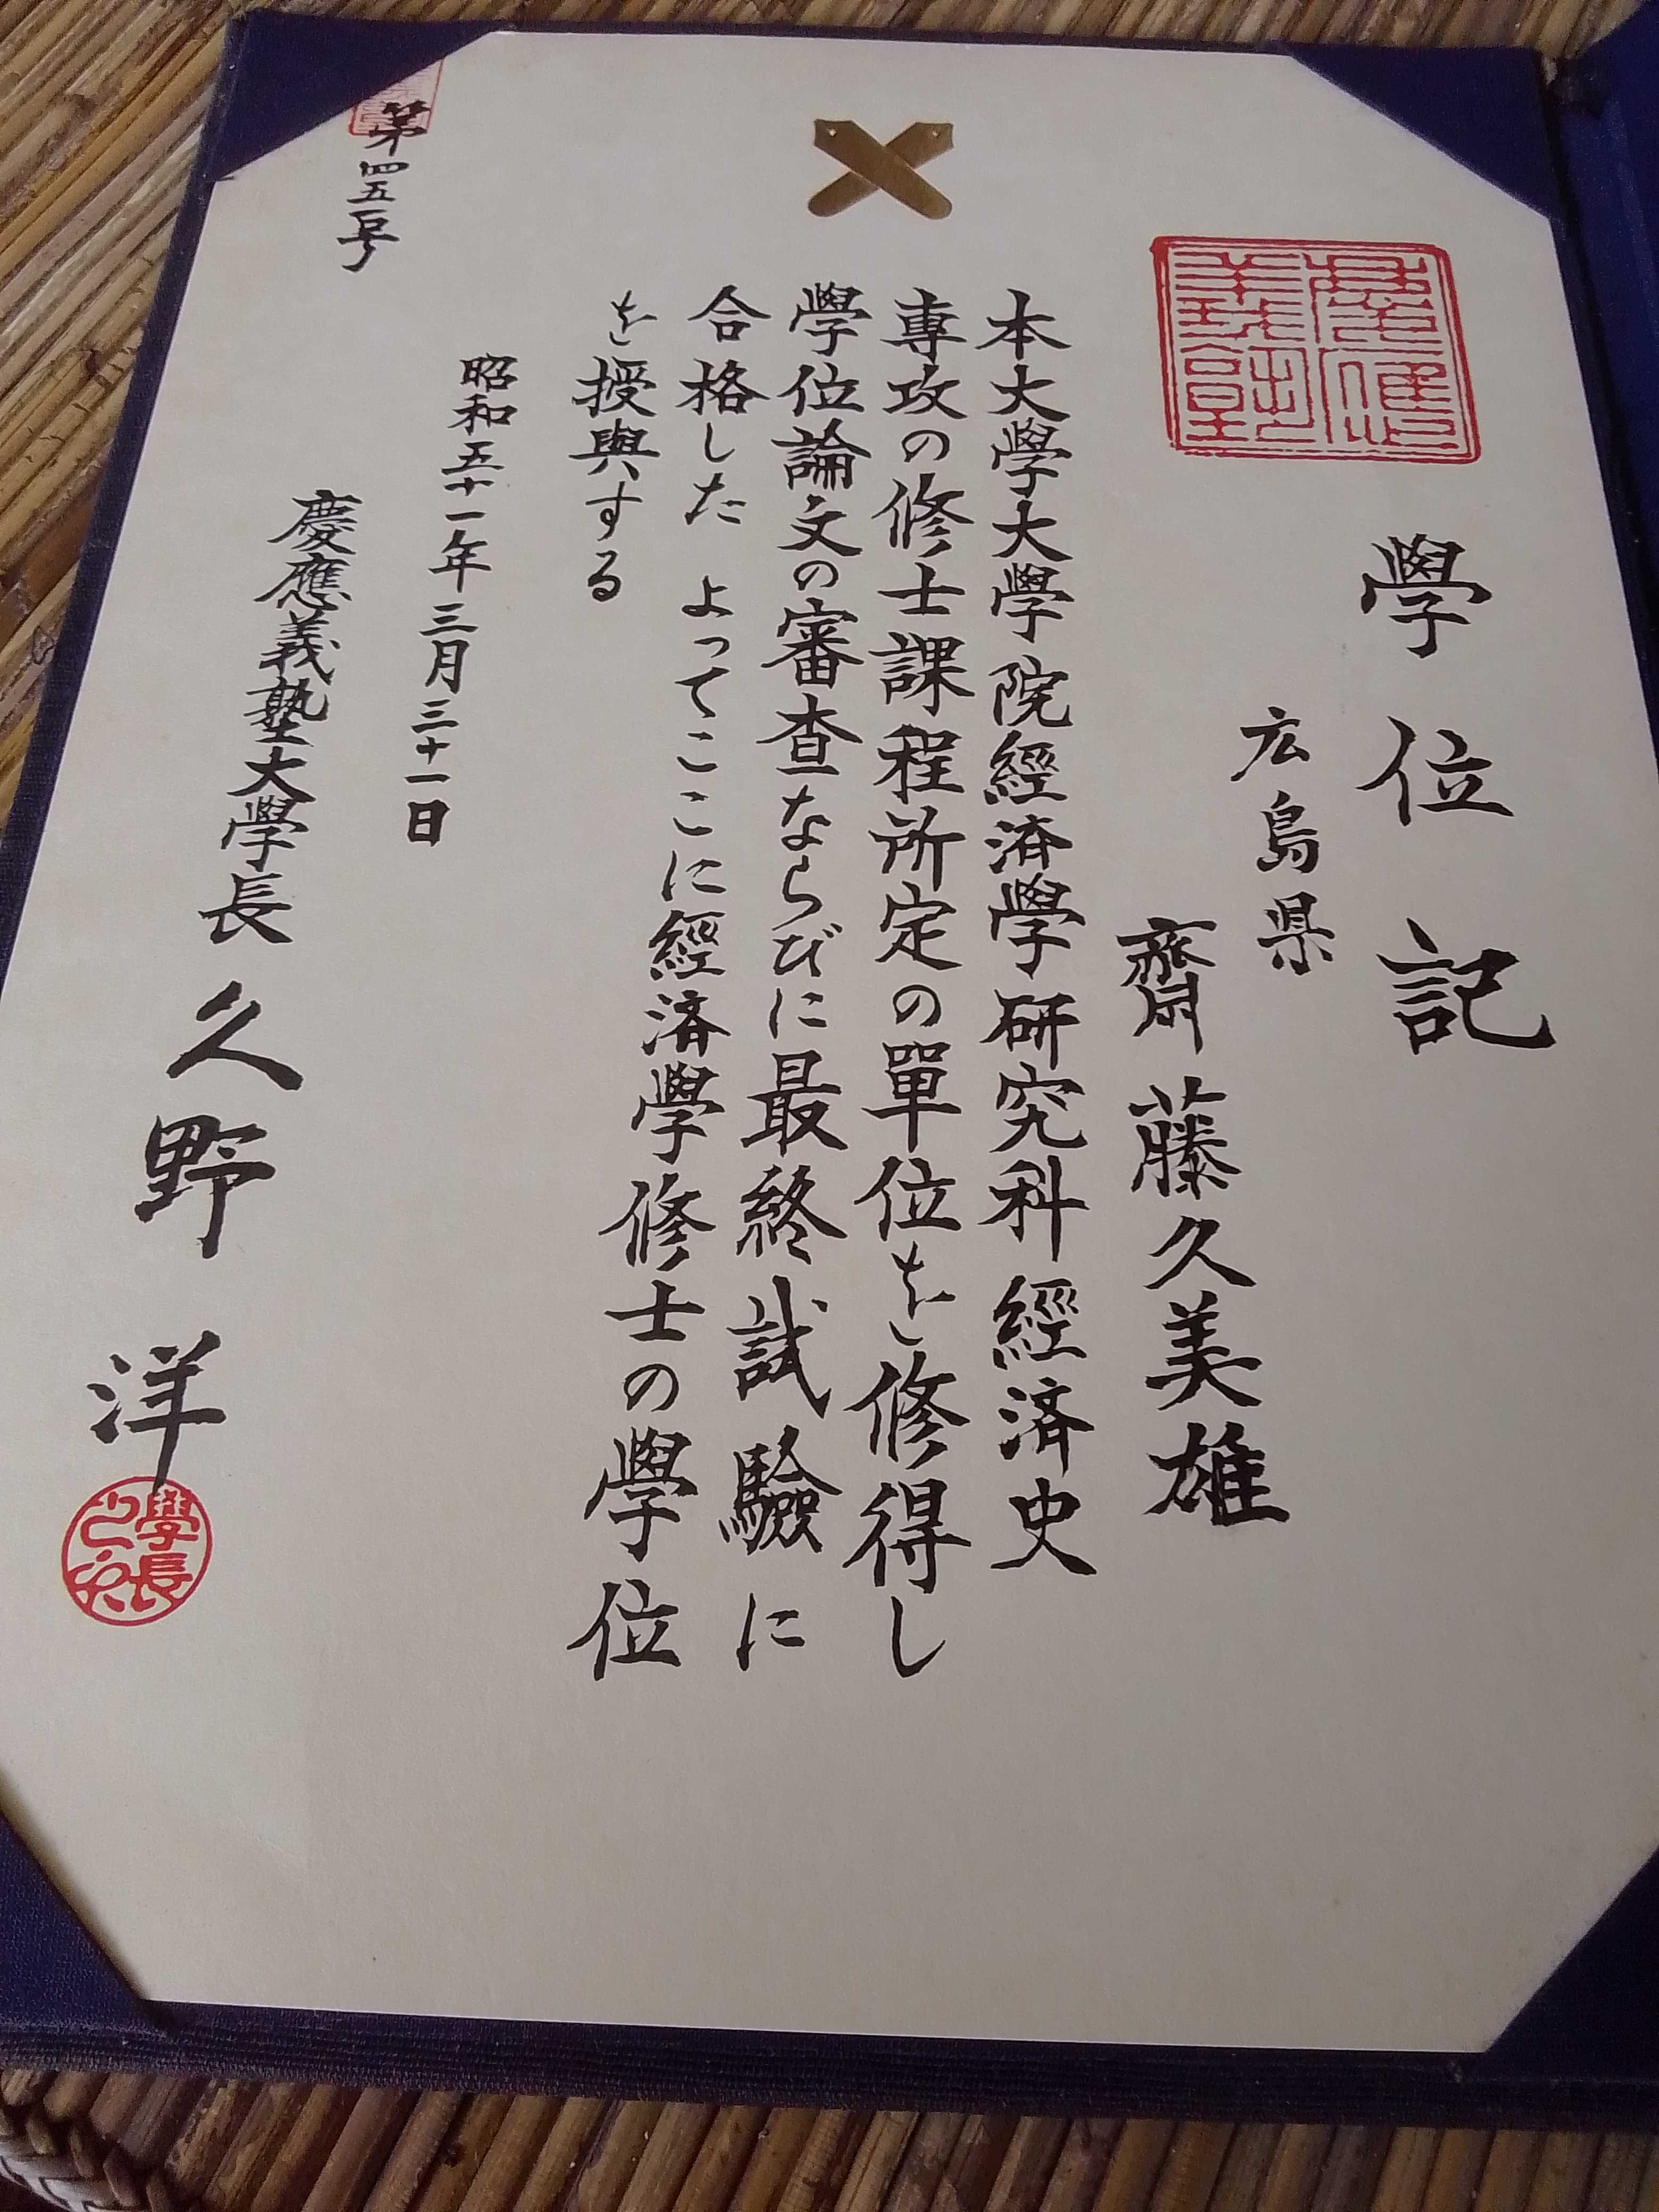 學位記
広島県
齋藤久美雄
本大學大學院經済學研究科經済史
専攻の修士課程所定の單位を修得し
學位論文の審査ならびに最終試驗に
合格した よってここに經済學修士の學位
を授與する
昭和五十一年三月三十一日
慶應義塾大學長 久野洋
學長之印